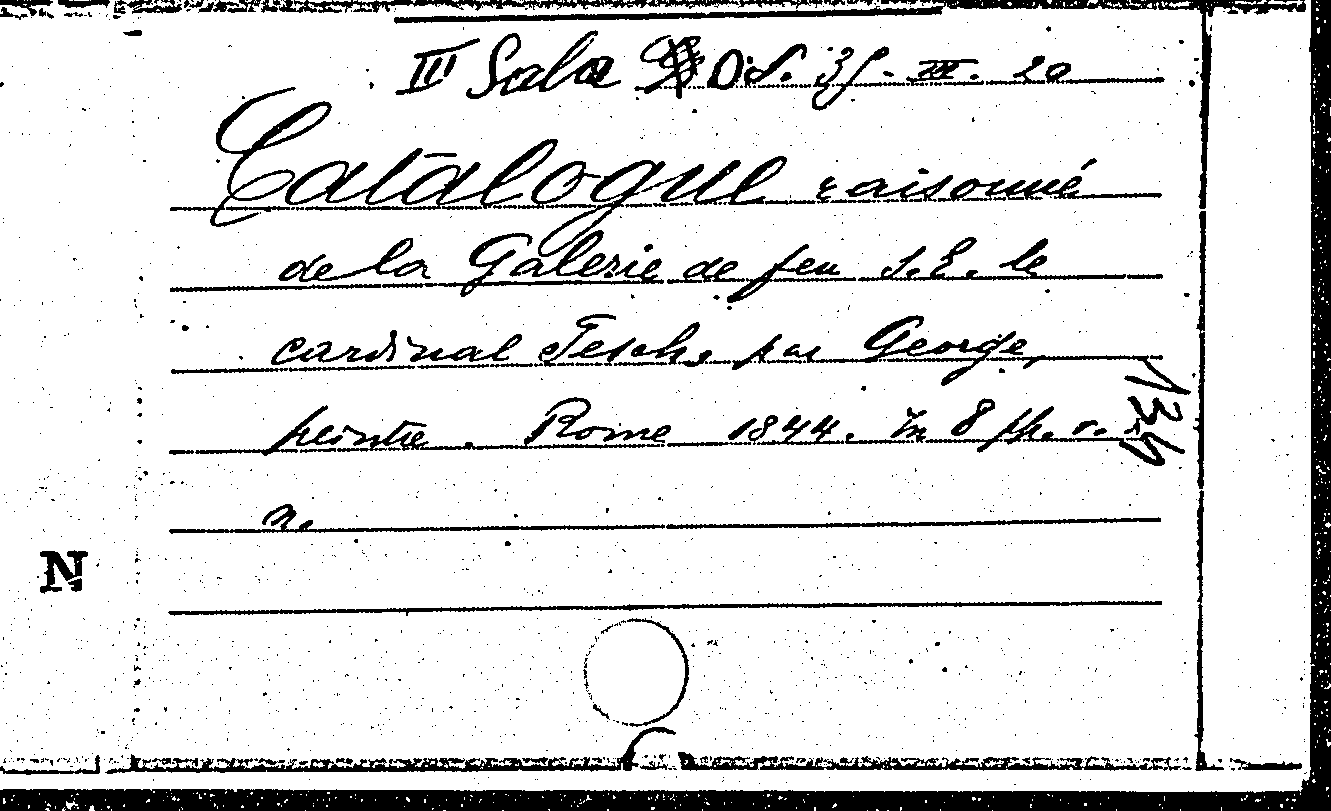 III Sala D.S. 35. III. 20
Catalogue raisonné
de la Galerie de feu S.E. le
cardinal Fesch, par George,
peintre. Rome 1844. In 8 pp. v.
n.
134
N